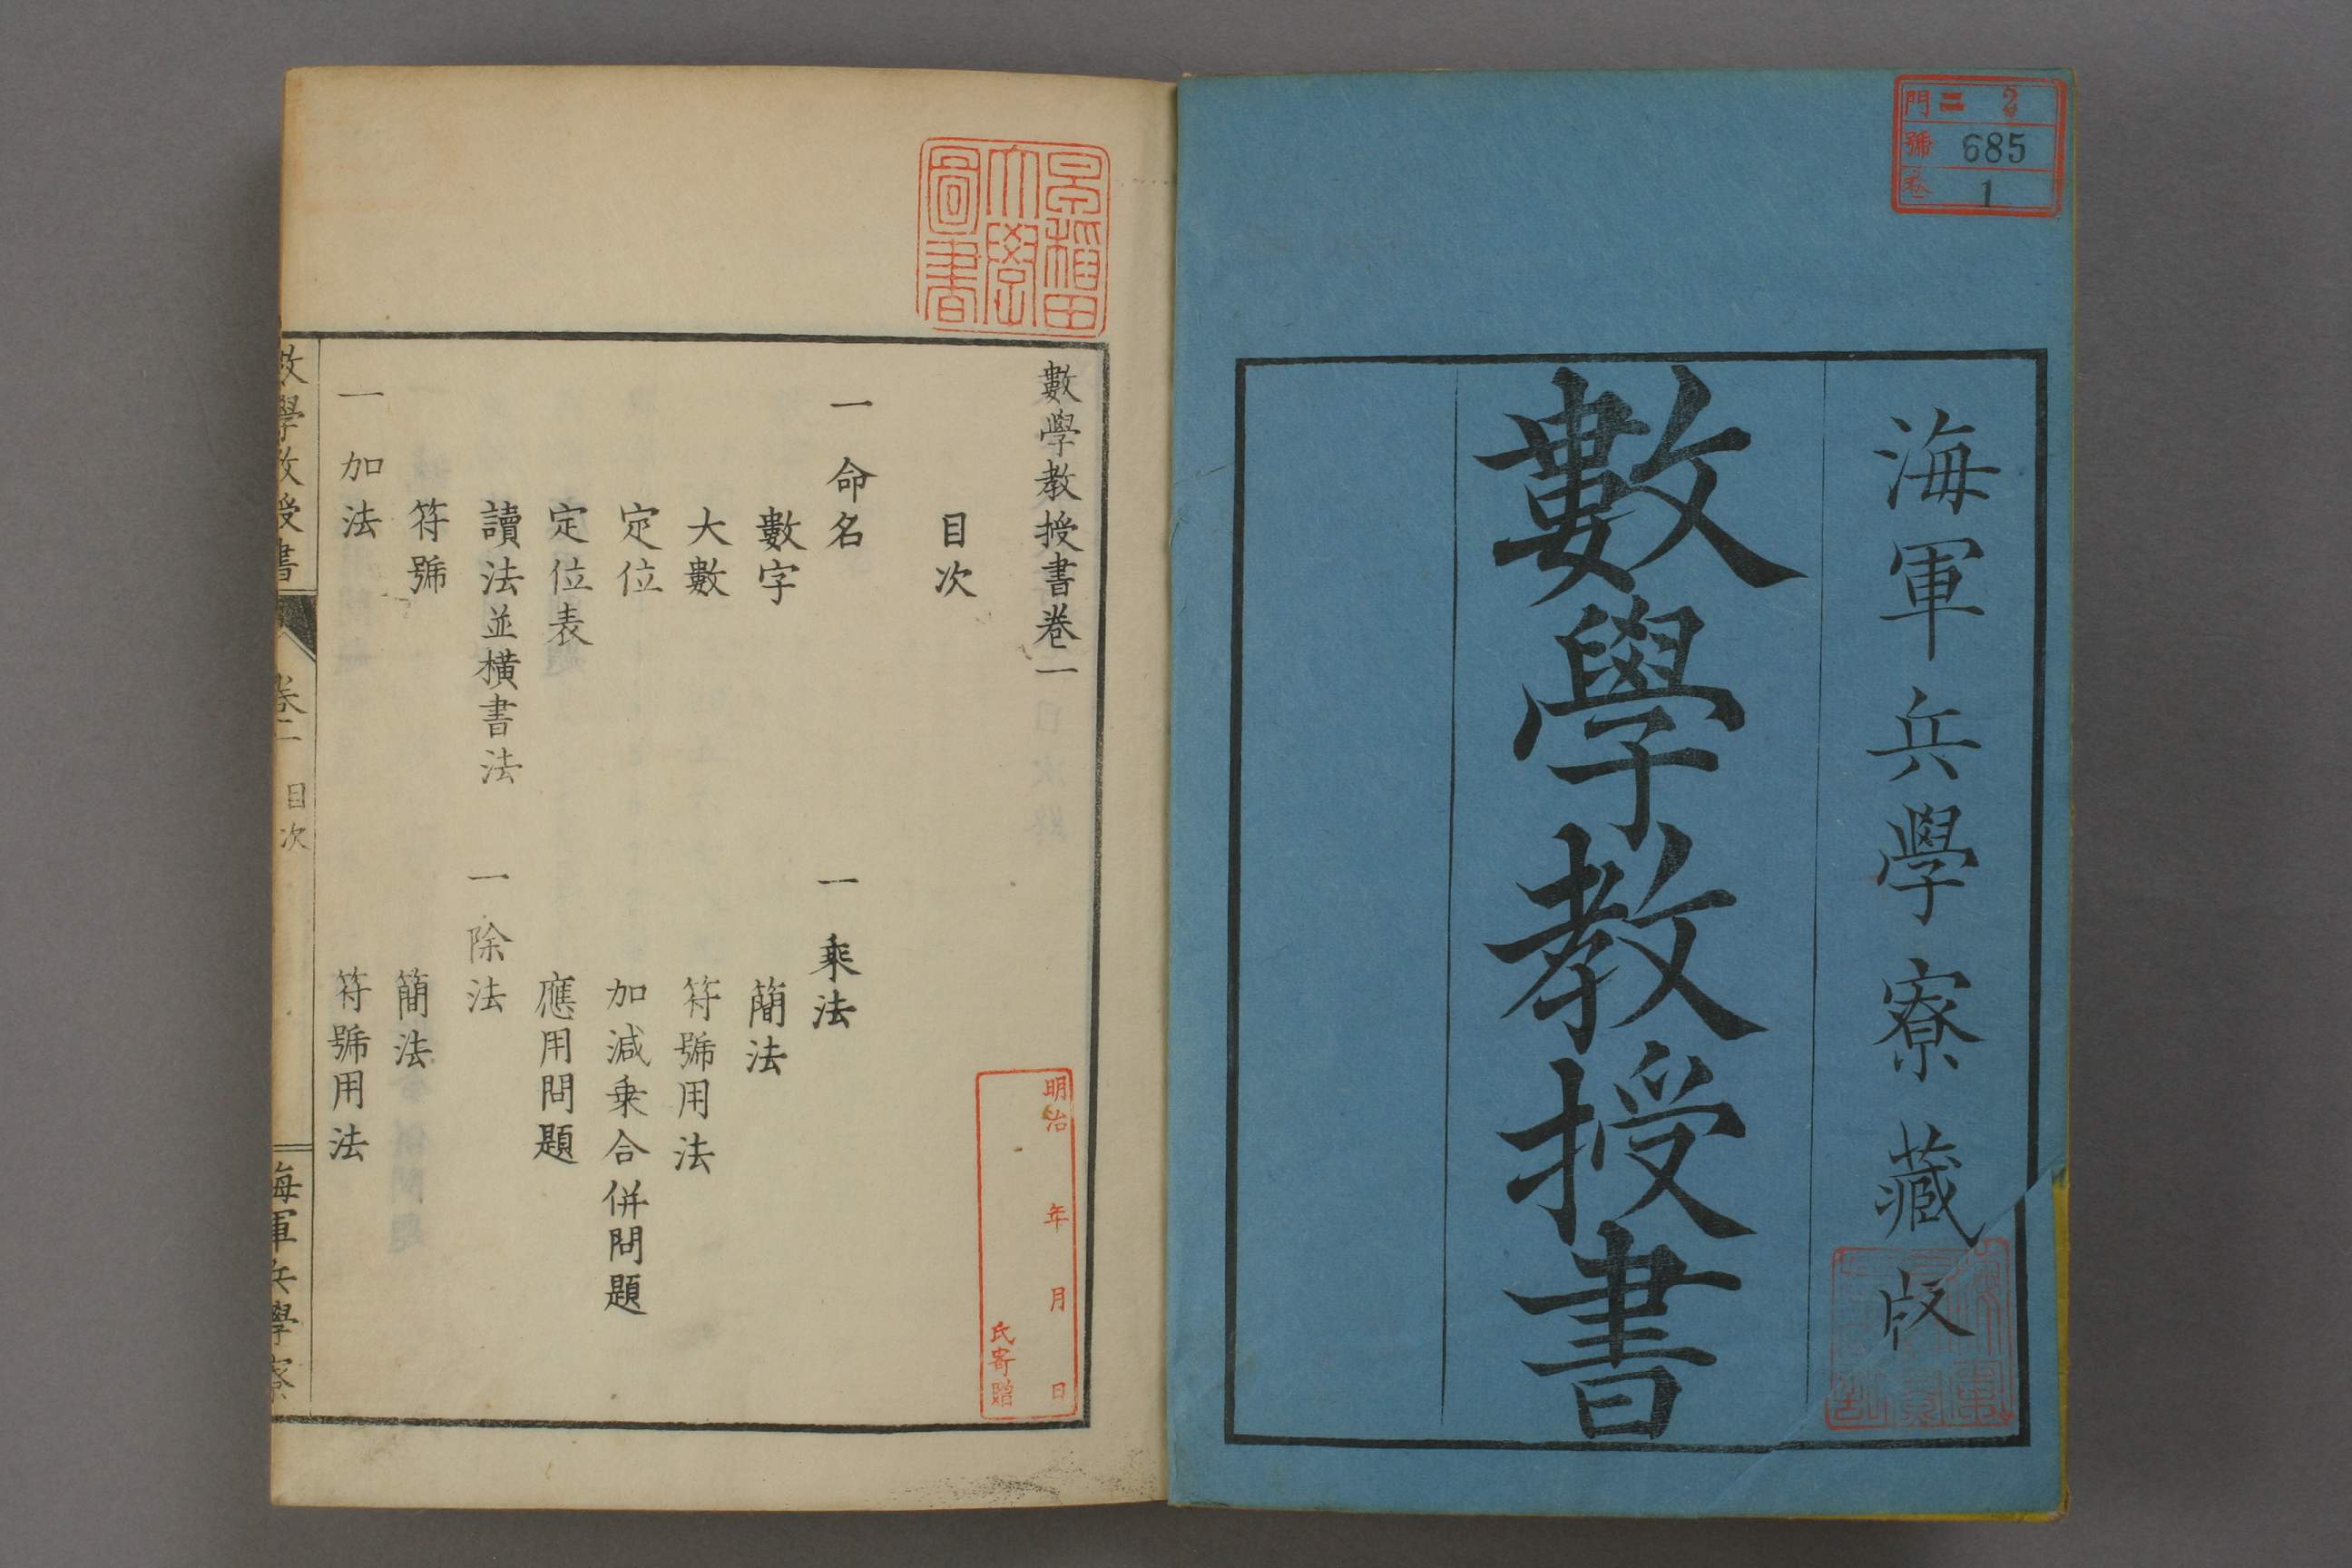 門 ニ 2
號 685
卷 1
海軍兵學寮藏版
數學教授書
早稲田
大學
圖書
數學教授書卷一
目次
一 命名
數字
大數
定位
定位表
讀法並橫書法
符號
一 加法
一 乘法
簡法
符號用法
加減乗合併問題
應用問題
一 除法
簡法
符號用法
明治 年 月 日
氏寄贈
數學教授書 卷一 目次 海軍兵學寮